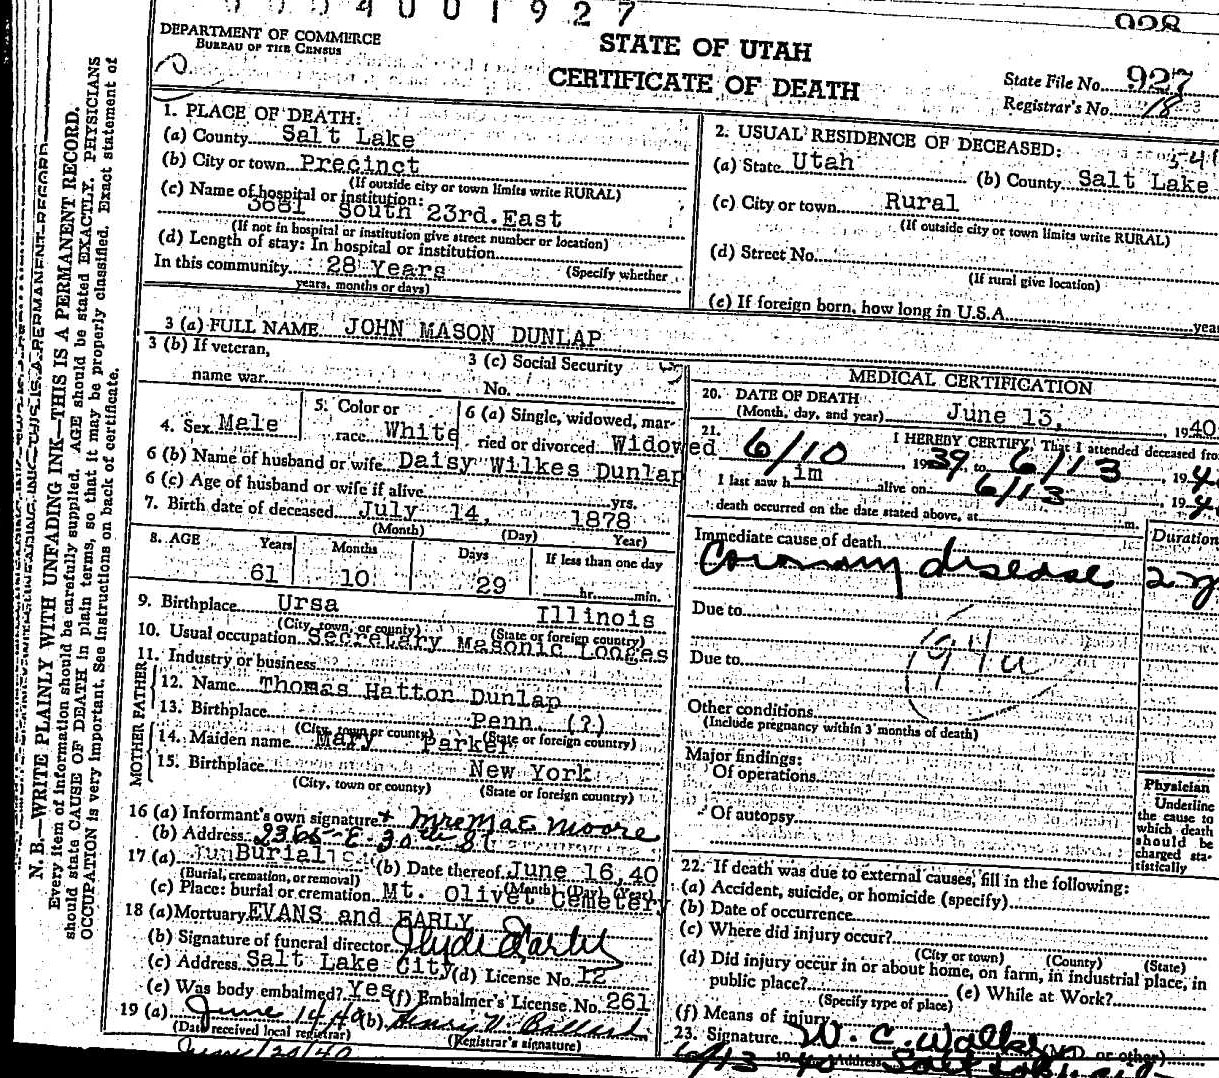 0 0 5 4 0 0 1 9 2 7
928
DEPARTMENT OF COMMERCE
BUREAU OF THE CENSUS
STATE OF UTAH
CERTIFICATE OF DEATH
State File No. 927
Registrar's No. 18
N. B.—WRITE PLAINLY WITH UNFADING INK—THIS IS A PERMANENT RECORD.
Every item of information should be carefully supplied. AGE should be stated EXACTLY. PHYSICIANS
should state CAUSE OF DEATH in plain terms, so that it may be properly classified. Exact statement of
OCCUPATION is very important. See instructions on back of certificate.
1. PLACE OF DEATH:
(a) County Salt Lake
(b) City or town Precinct
(If outside city or town limits write RURAL)
(c) Name of hospital or institution:
3681 South 23rd.East
(If not in hospital or institution give street number or location)
(d) Length of stay: In hospital or institution
In this community 28 Years (Specify whether
years, months or days)
2. USUAL RESIDENCE OF DECEASED:
(a) State Utah (b) County Salt Lake
(c) City or town Rural
(If outside city or town limits write RURAL)
(d) Street No.
(If rural give location)
(e) If foreign born, how long in U.S.A. year
3 (a) FULL NAME JOHN MASON DUNLAP
3 (b) If veteran,
name war
3 (c) Social Security
No.
4. Sex Male
5. Color or
race White
6 (a) Single, widowed, mar-
ried or divorced Widowed
6 (b) Name of husband or wife Daisy Wilkes Dunlap
6 (c) Age of husband or wife if alive yrs.
7. Birth date of deceased July 14, 1878
(Month) (Day) Year)
8. AGE Years Months Days If less than one day
61 10 29 hr. min.
9. Birthplace Ursa Illinois
(City, town, or county) (State or foreign country)
10. Usual occupation Secretary Masonic Lodges
11. Industry or business
MOTHER FATHER
12. Name Thomas Hatton Dunlap
13. Birthplace Penn (?)
(City, town or county) (State or foreign country)
14. Maiden name Mary Parker
15. Birthplace New York
(City, town or county) (State or foreign country)
16 (a) Informant's own signature Mrs Mae Moore
(b) Address 2365 E. 30th St
17 (a) Burial (b) Date thereof June 16, 40
(Burial, cremation, or removal) (Month) (Day) (Year)
(c) Place: burial or cremation Mt. Olivet Cemetery
18 (a) Mortuary EVANS and EARLY
(b) Signature of funeral director
(c) Address Salt Lake City (d) License No. 12
(e) Was body embalmed? Yes (f) Embalmer's License No. 261
19 (a) June 14 40 (b)
(Date received local registrar) (Registrar's signature)
MEDICAL CERTIFICATION
20. DATE OF DEATH
(Month, day, and year) June 13, 1940
21. I HEREBY CERTIFY, That I attended deceased from
6/10, 1939 to 6/13, 194
I last saw him alive on 6/13, 194
death occurred on the date stated above, at m.
Immediate cause of death Duration
Coronary disease 2 y
Due to
94a
Due to
Other conditions
(Include pregnancy within 3 months of death)
Major findings:
Of operations
Of autopsy
Physician
Underline
the cause to
which death
should be
charged sta-
tistically
22. If death was due to external causes, fill in the following:
(a) Accident, suicide, or homicide (specify)
(b) Date of occurrence
(c) Where did injury occur?
(City or town) (County) (State)
(d) Did injury occur in or about home, on farm, in industrial place, in
public place? (e) While at Work?
(Specify type of place)
(f) Means of injury
23. Signature W. C. Walker (M.D. or other)
6/13 1940 Address